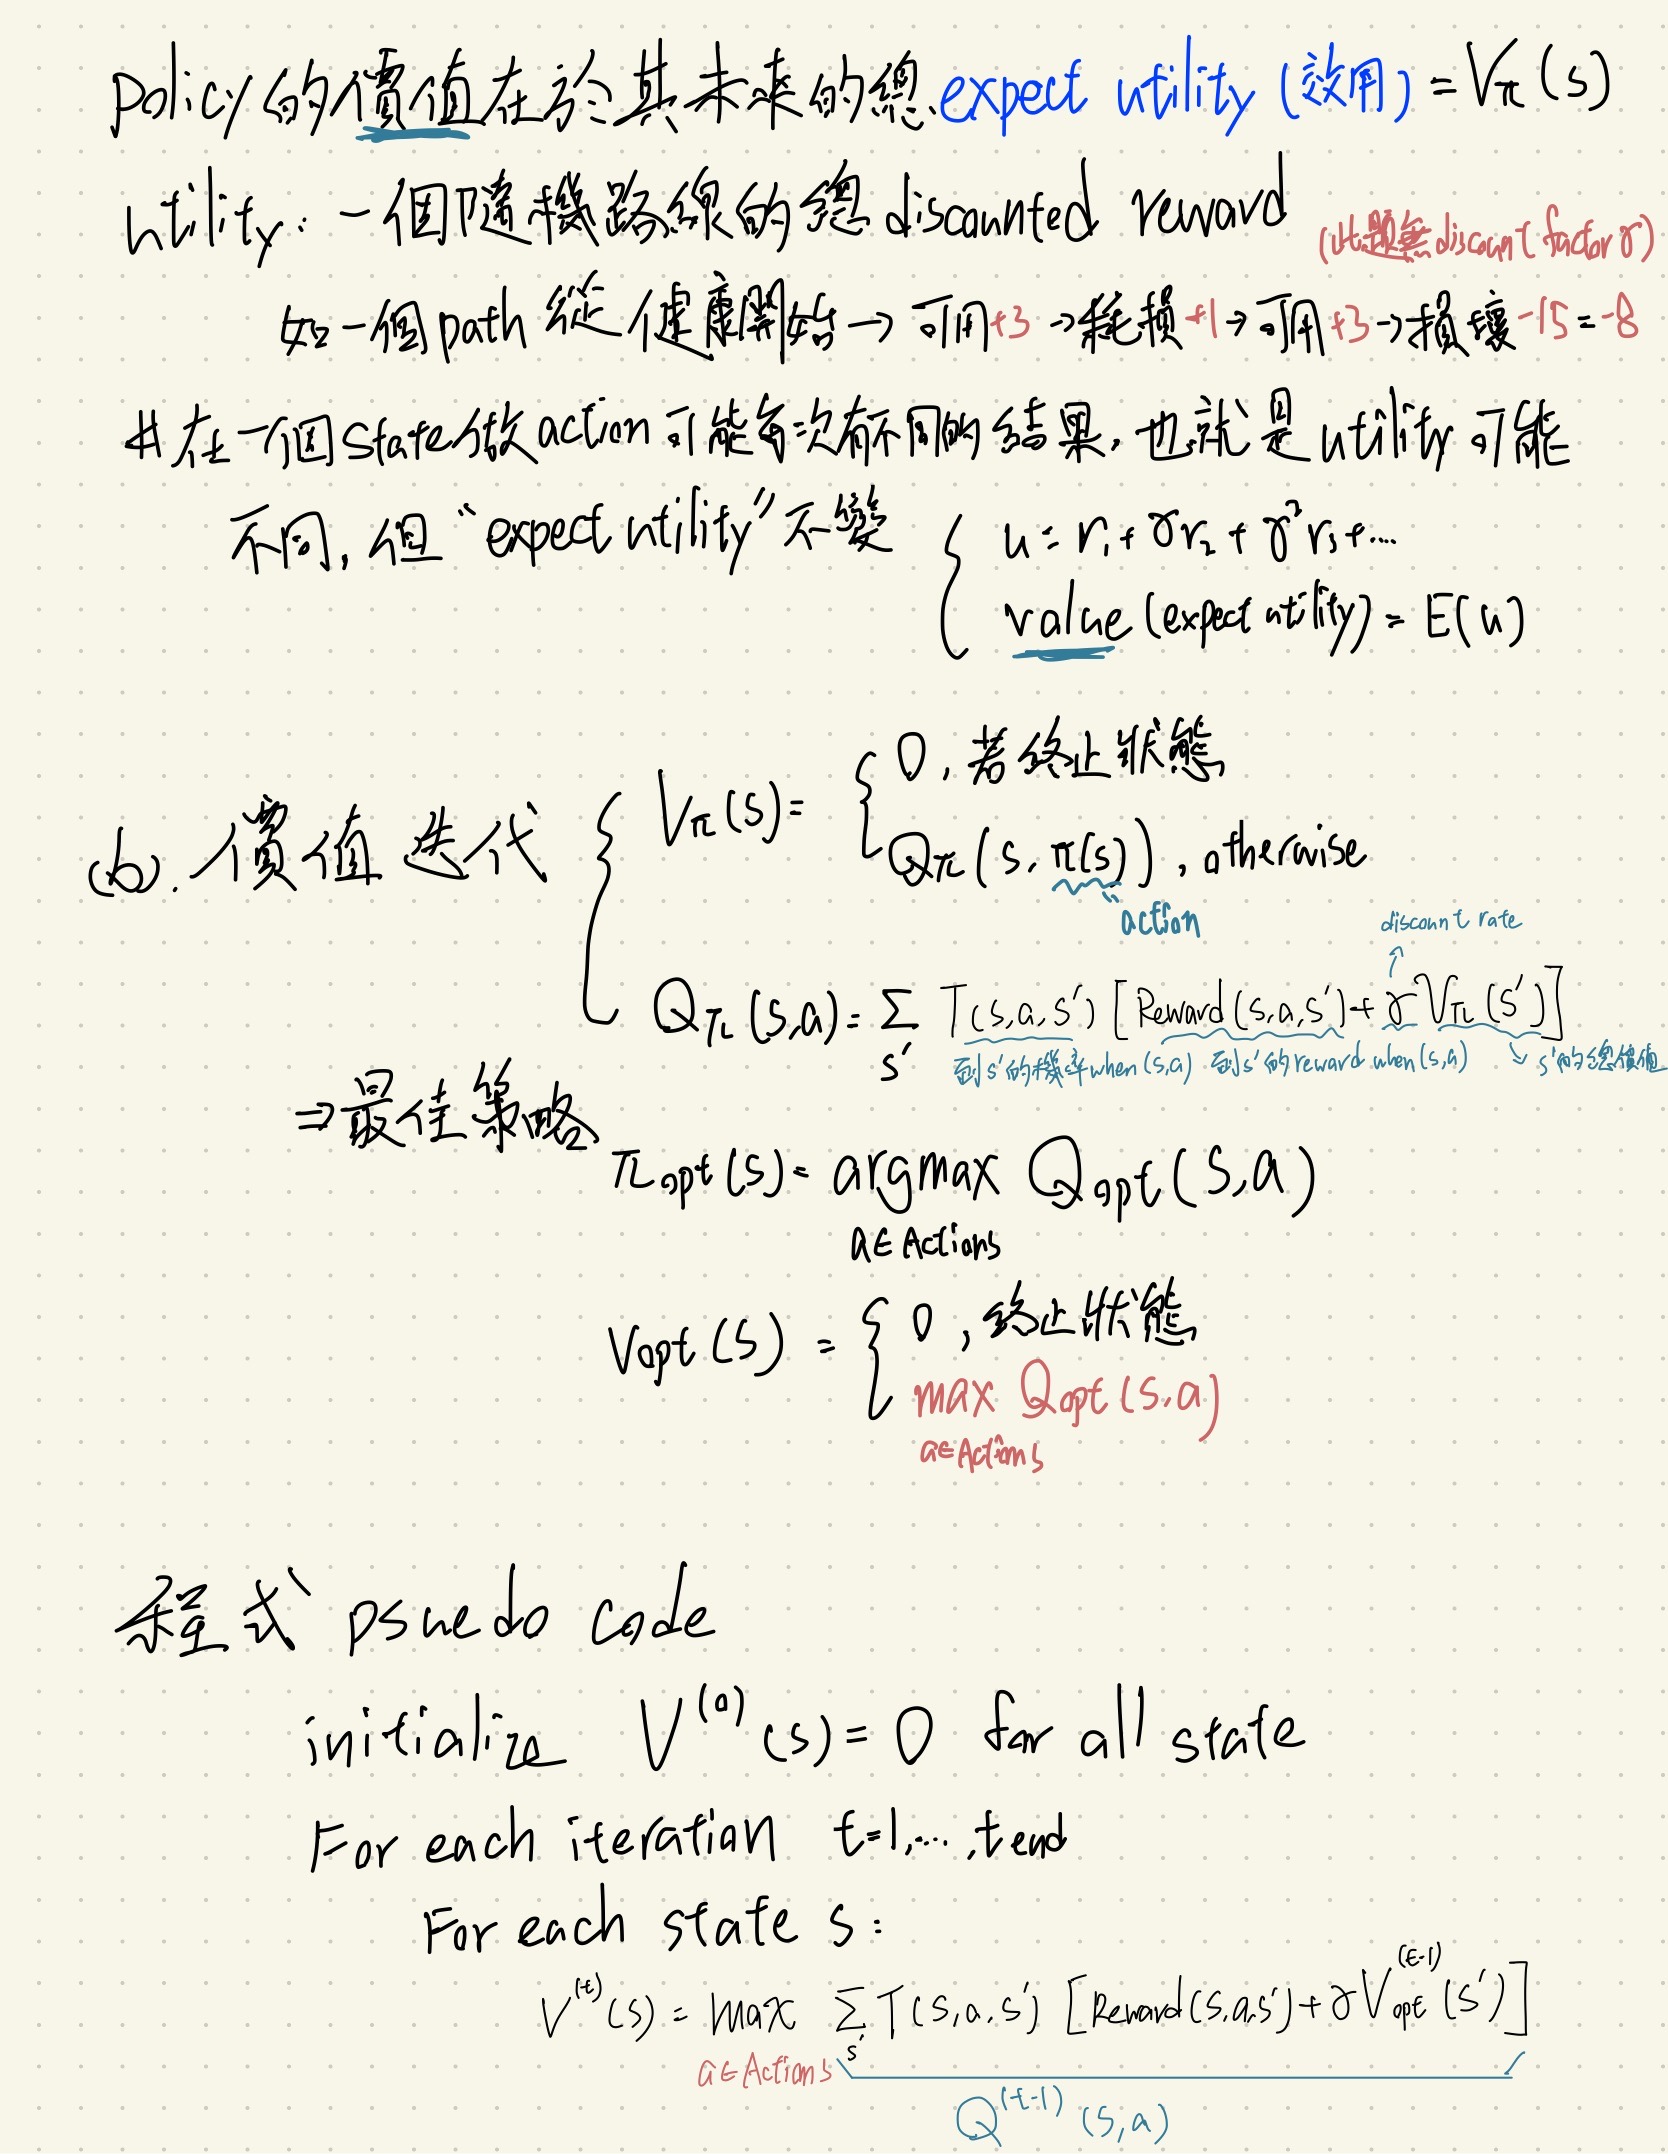 Policy的價值在於其未來的總expect utility (效用) = Vπ(s)
utility: 一個隨機路線的總 discounted reward (此題無discount factor γ)
如一個path 從健康開始 → 可用+3 → 耗損+1 → 可用+3 → 損壞-15 = -8
#在一個state做action可能每次有不同的結果, 也就是utility可能
不同, 但 "expect utility" 不變
{ u = r₁ + γr₂ + γ²r₃ + ...
value (expect utility) = E(u)
(b). 價值迭代 { Vπ(s) = { 0, 若終止狀態
Qπ(s, π(s)), otherwise
action
discount rate
Qπ(s,a) = Σ T(s,a,s') [Reward(s,a,s') + γVπ(s')]
s'
到s'的機率when(s,a) 到s'的reward when(s,a) s'的總價值
⇒ 最佳策略
πopt(s) = argmax Qopt(s,a)
a∈Actions
Vopt(s) = { 0, 終止狀態
max Qopt(s,a)
a∈Actions
程式 psuedo code
initialize V⁽⁰⁾(s) = 0 for all state
For each iteration t=1,...., tend
For each state s:
V⁽ᵗ⁾(s) = max Σ T(s,a,s') [Reward(s,a,s') + γVopt⁽ᵗ⁻¹⁾(s')]
a∈Actions s'
Q⁽ᵗ⁻¹⁾(s,a)